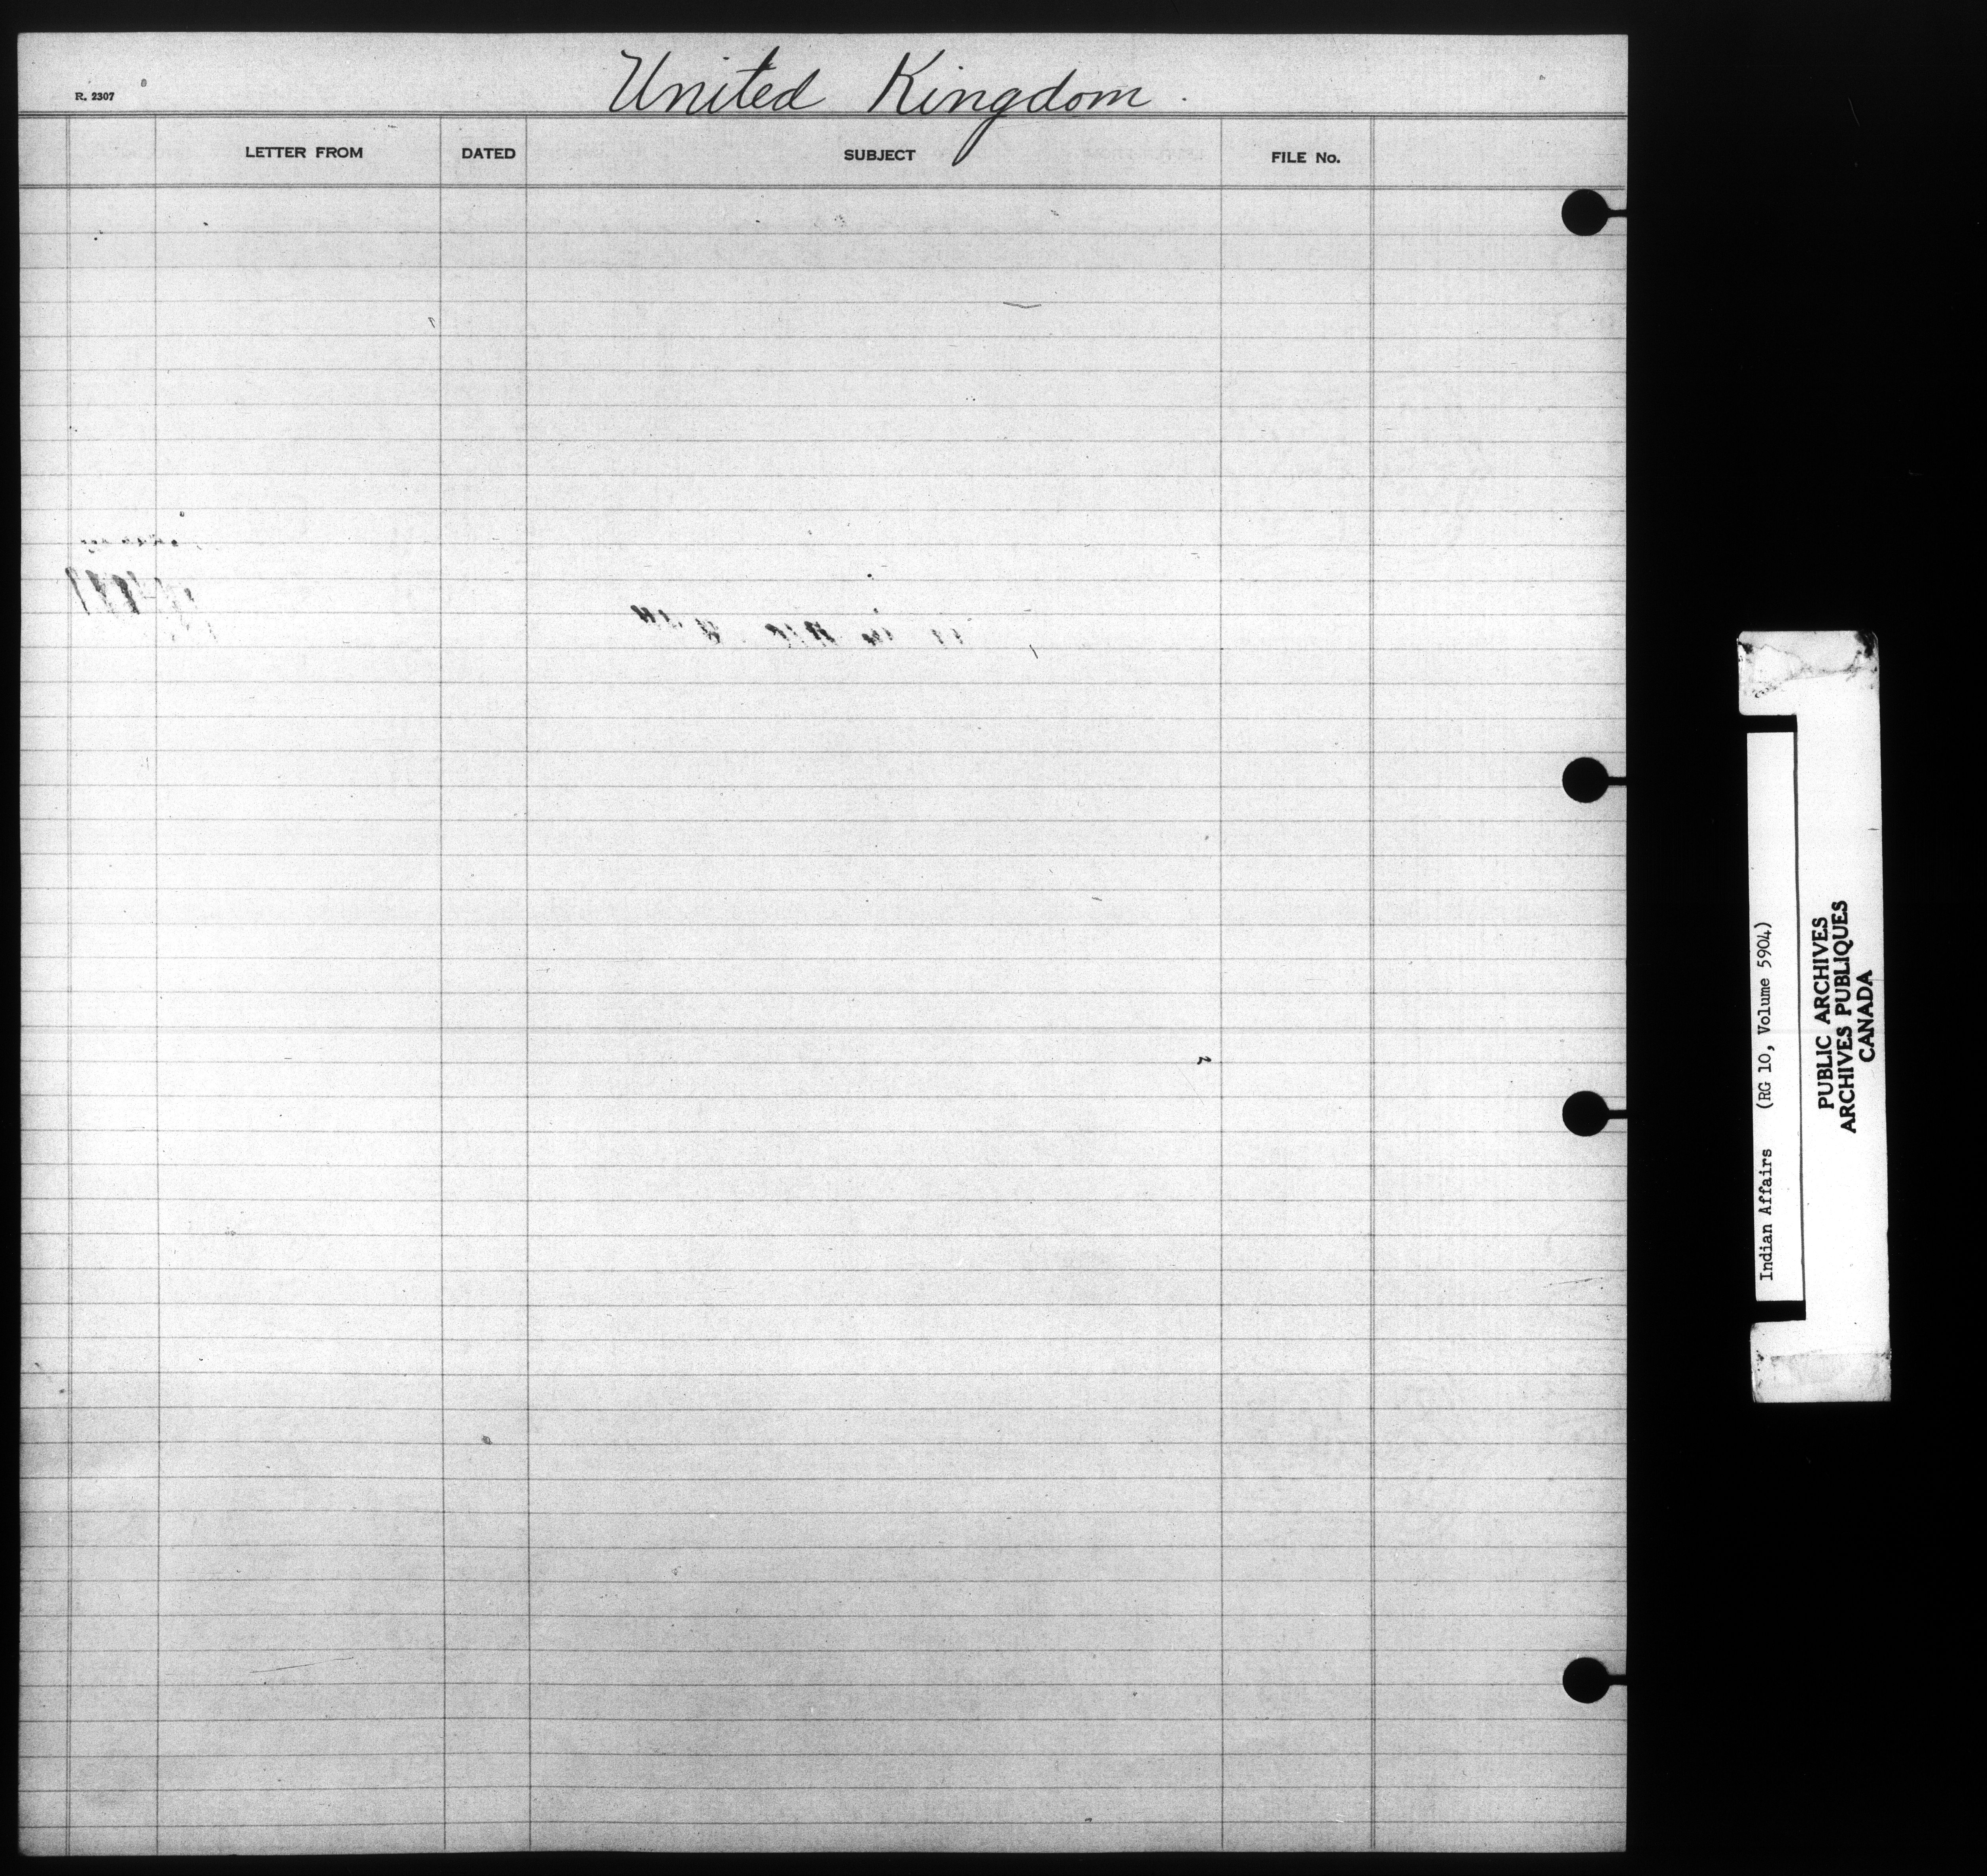 United Kingdom.
R. 2307
LETTER FROM DATED SUBJECT FILE No.
Indian Affairs (RG 10, Volume 5904)
PUBLIC ARCHIVES
ARCHIVES PUBLIQUES
CANADA